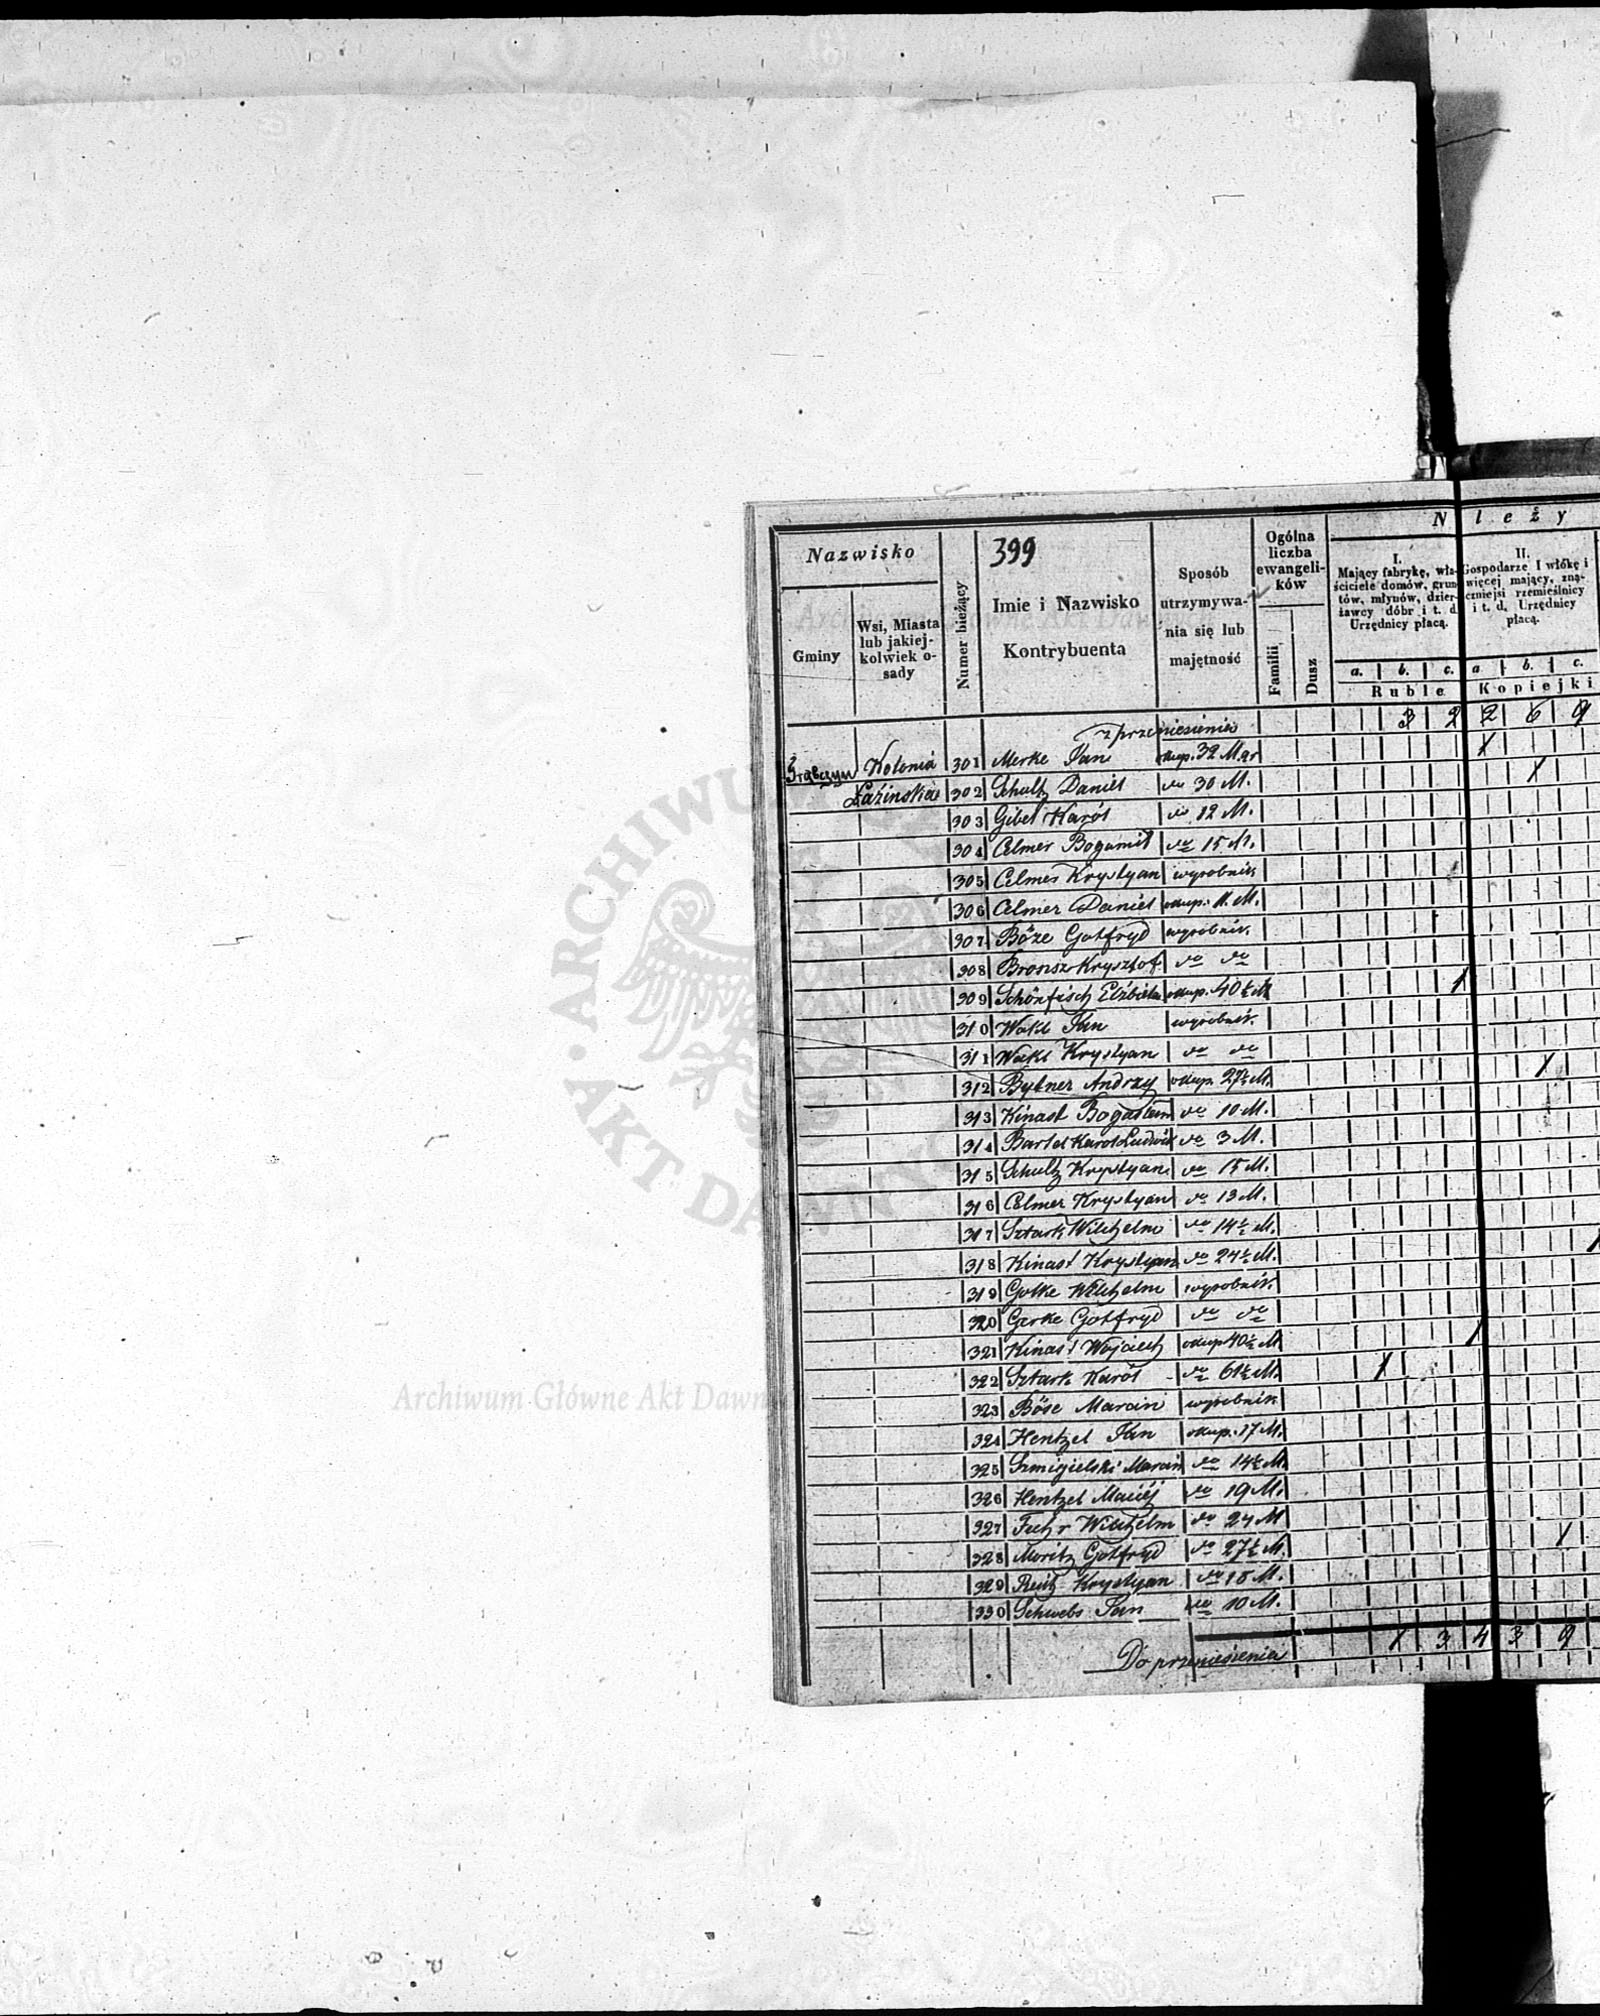 N leży
Nazwisko
Gminy
Wsi, Miasta lub jakiej-kolwiek o-sady
Numer bieżący
399
Imie i Nazwisko
Kontrybuenta
Sposób utrzymywa-nia się lub majętność
Ogólna liczba ewangeli-ków
Familii
Dusz
I.
Mający fabrykę, wła-
ściciele domów, grun
tów, młynów, dzier-
żawcy dóbr i t. d.
Urzędnicy płacą.
II.
Gospodarze I włókę i
więcej mający, zną-
czniejsi rzemieślnicy
i t. d. Urzędnicy
płacą.
a. b. c. a b. c.
Ruble Kopiejki
z przeniesienia 3 2 2 6 9
Kolonia 301 Merke Jan okup. 32 M. 1
Łazińska 302 Schultz Daniel do 30 M. 1
303 Gibel Karól do 12 M.
304 Celmer Bogumił do 15 M.
305 Celmer Krystyan wyrobnik
306 Celmer Daniel okup. 11. M.
307 Böze Gotfryd wyrobnik
308 Bronsz Krysztof do do
309 Schönfisch Elżbieta okup. 40½ M 1
310 Wakl Jan wyrobnik
311 Wakl Krystyan do do
312 Bytner Andrzy okup. 27½ M. 1
313 Kinast do 10 M.
314 Bartel Karol Ludwik do 3 M.
315 Schultz Krystyan do 15 M.
316 Celmer Krystyan do 13 M.
317 Sztark Wilchelm do 14½ M.
318 Kinast Krystyan do 24½ M. 1
319 Golke Wilchelm wyrobnik
320 Gerke Gotfryd do do
321 Kinast Wojciech okup 40½ M 1
322 Sztark Karól do 61½ M. 1
323 Böse Marcin wyrobnik
324 Hentzel Jan okup. 17 M.
325 Szmigielski Marcin do 14½ M.
326 Hentzel Maciéj do 19 M.
327 Wilchelm do 24 M
328 Moritz Gotfryd do 27½ M. 1
329 Krystyan do 15 M.
330 Schwebs Jan do 10 M.
Do przeniesienia 1 3 4 3 9
Archiwum Główne Akt Dawnych
ARCHIWUM
AKT DAWNYCH
Archiwum Główne Akt Dawnych